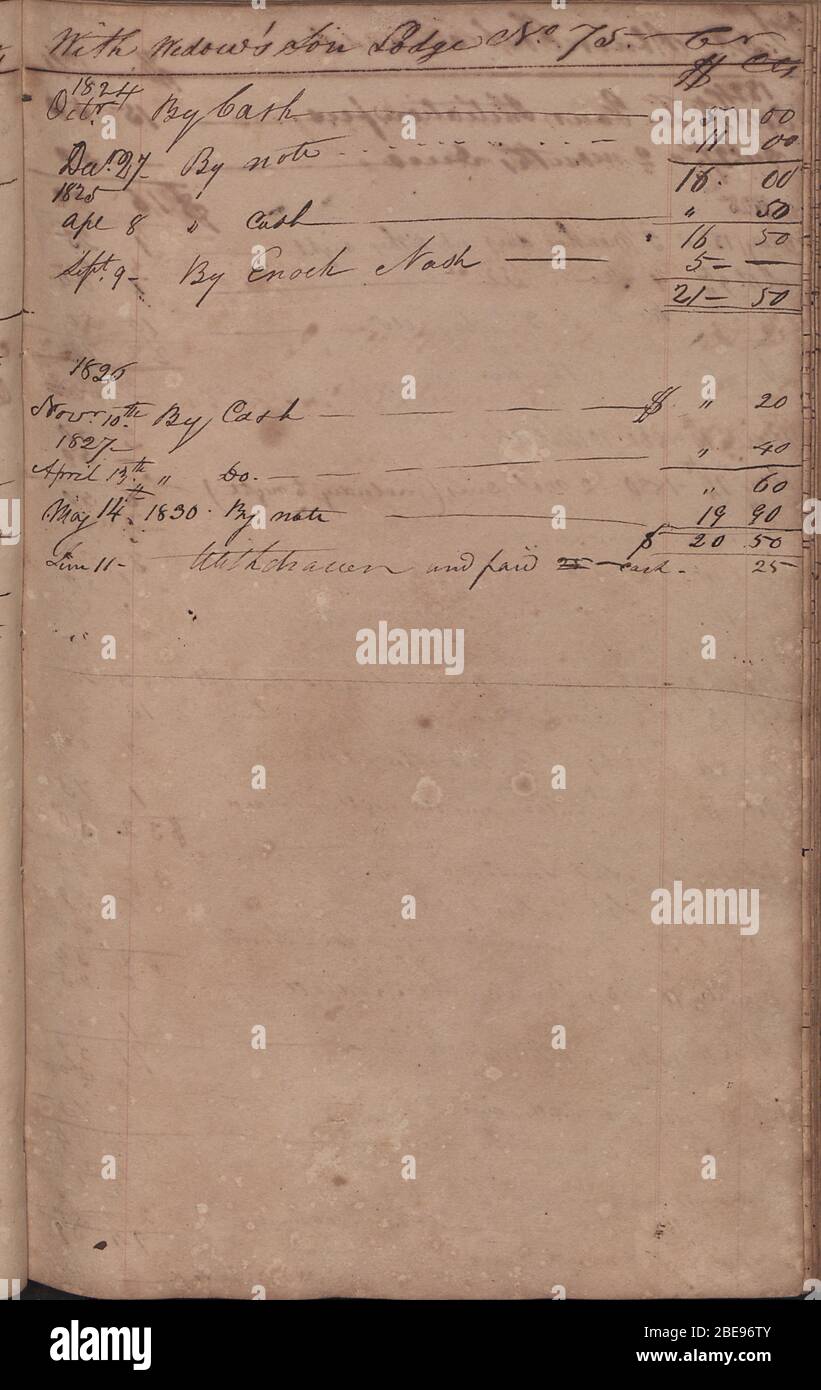 With Wedow's Son Lodge No. 75. Cr
$ Cts
1824
Octr. By Cash 5 00
11 00
Decr. 27 By note
16. 00
1825
Ape 8 " Cash " 50
16 50
Sept. 9 - By Enoch Nash 5 -
21 - 50
1826
Novr. 10th By Cash $ " 20
1827
" 40
April 13th " Do.
" 60
May 14th 1830. By note 19 90
$ 20 50
11 - Withdrawen and paid 25 - cash - 25
a alamy
alamy
Image ID: 2BE96TY
www.alamy.com